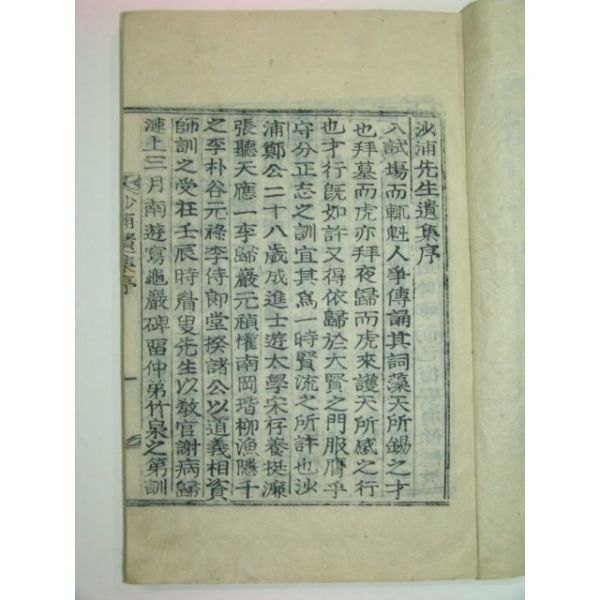 沙浦先生遺集序
入試場而輒魁人爭傳誦其詞藻天所錫之才
也拜墓而虎亦拜夜歸而虎來護天所感之行
也才行旣如許又得依歸於大賢之門服膺乎
守分正志之訓宜其爲一時賢流之所許也沙
浦鄭公二十八歲成進士遊太學宋存養挺濂
張聽天應一李歸巖元禎懼南岡瑎柳漁隱千
之李朴谷元祿李侍郞堂揆諸公以道義相資
師訓之受在壬辰時眉叟先生以敎官謝病歸
漣上三月南遊寫龜巖碑留仲弟竹泉之第訓
沙浦遺集序
一